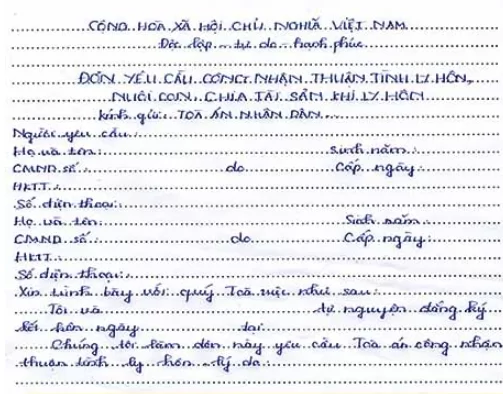 CỘNG HOÀ XÃ HỘI CHỦ NGHĨA VIỆT NAM
Độc lập - tự do - hạnh phúc
ĐƠN YÊU CẦU CÔNG NHẬN THUẬN TÌNH LY HÔN,
NUÔI CON, CHIA TÀI SẢN KHI LY HÔN
kính gửi: TOÀ ÁN NHÂN DÂN
Người yêu cầu:
Họ và tên: Sinh năm:
CMND số: do Cấp ngày:
HKTT:
Số điện thoại:
Họ và tên: Sinh năm:
CMND số: do Cấp ngày:
HKTT:
Số điện thoại:
Xin trình bày với quý Toà việc như sau:
Tôi và tự nguyện đăng ký
kết hôn ngày tại:
Chúng tôi làm đơn này yêu cầu Toà án công nhận
thuận tình ly hôn - lý do: